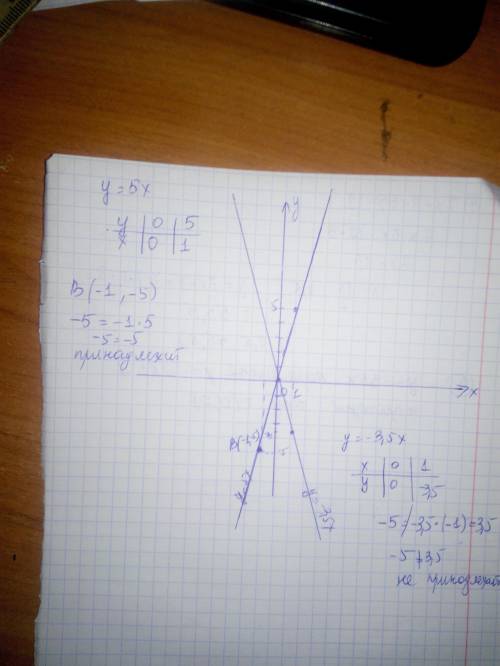 y = 5x
y | 0 | 5
x | 0 | 1
B(-1; -5)
-5 = -1·5
-5 = -5
принадлежит
y
5
0 1
x
-3
B(-1;-5)
-5
y=5x
y=-3,5x
y = -3,5x
x | 0 | 1
y | 0 | -3,5
-5 ≠ -3,5·(-1) = 3,5
-5 ≠ 3,5
не принадлежит